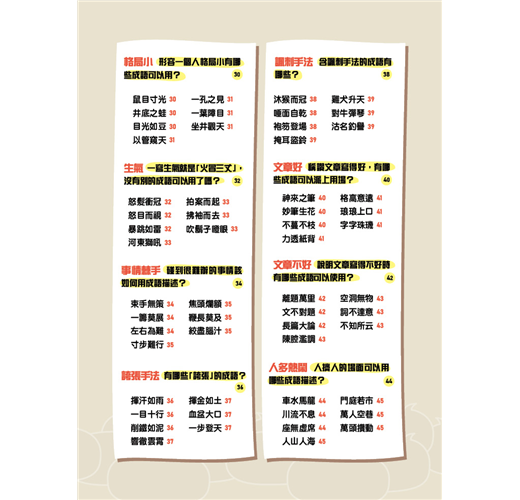 格局小 形容一個人格局小有哪
些成語可以用？ 30
鼠目寸光 30 一孔之見 31
井底之蛙 30 一葉障目 31
目光如豆 30 坐井觀天 31
以管窺天 31
生氣 一寫生氣就是「火冒三丈」，
沒有別的成語可以用了嗎？ 32
怒髮衝冠 32 拍案而起 33
怒目而視 32 拂袖而去 33
暴跳如雷 32 吹鬍子瞪眼 33
河東獅吼 33
事情棘手 碰到很難辦的事情該
如何用成語描述？ 34
束手無策 34 焦頭爛額 35
一籌莫展 34 鞭長莫及 35
左右為難 34 絞盡腦汁 35
寸步難行 35
誇張手法 有哪些「誇張」的成語？
36
揮汗如雨 36 揮金如土 37
一目十行 36 血盆大口 37
削鐵如泥 36 一步登天 37
響徹雲霄 37
諷刺手法 含諷刺手法的成語有
哪些？ 38
沐猴而冠 38 雞犬升天 39
唾面自乾 38 對牛彈琴 39
袍笏登場 38 沽名釣譽 39
掩耳盜鈴 39
文章好 稱讚文章寫得好，有哪
些成語可以派上用場？ 40
神來之筆 40 格高意遠 41
妙筆生花 40 琅琅上口 41
不蔓不枝 40 字字珠璣 41
力透紙背 41
文章不好 說明文章寫得不好時
有哪些成語可以使用？ 42
離題萬里 42 空洞無物 43
文不對題 42 詞不達意 43
長篇大論 42 不知所云 43
陳腔濫調 43
人多熱鬧 人擠人的場面可以用
哪些成語描述？ 44
車水馬龍 44 門庭若市 45
川流不息 44 萬人空巷 45
座無虛席 44 萬頭攢動 45
人山人海 45